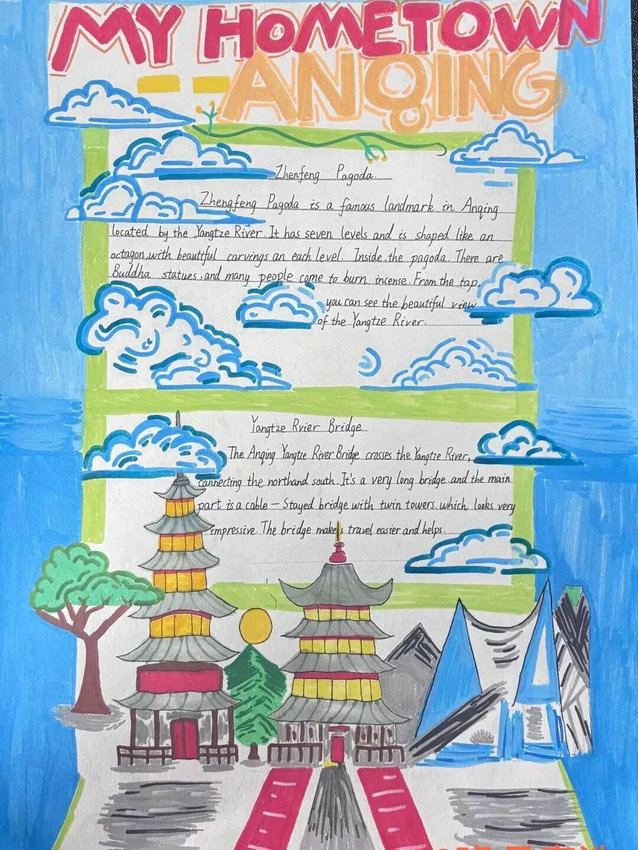 MY HOMETOWN
——ANQING
Zhenfeng Pagoda
Zhengfeng Pagoda is a famous landmark in Anqing
located by the Yangtze River. It has seven levels and is shaped like an
octagon, with beautiful carvings an each level. Inside. the pagoda. There are
Buddha statues, and many people come to burn incense. From the tap,
you can see the beautiful view
of the Yangtze River.
Yangtze Rvier Bridge
The Anqing Yangtze River Bridge crosses the Yangtze River,
connecting the northand south. It's a very long bridge and the main
part is a cable — Stayed bridge with twin towers. which looks very
impressive. The bridge makes travel easier and helps.